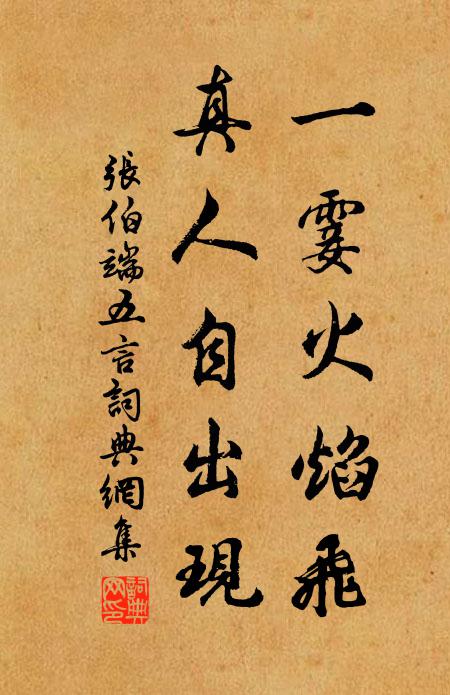 一霎火焰飛
真人自出現
張伯端五言詞典網集
詞典
网印